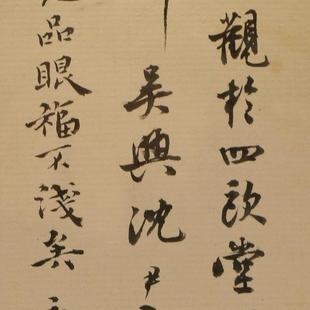 觀於四歐堂
吳興沈尹
品眼福不淺矣